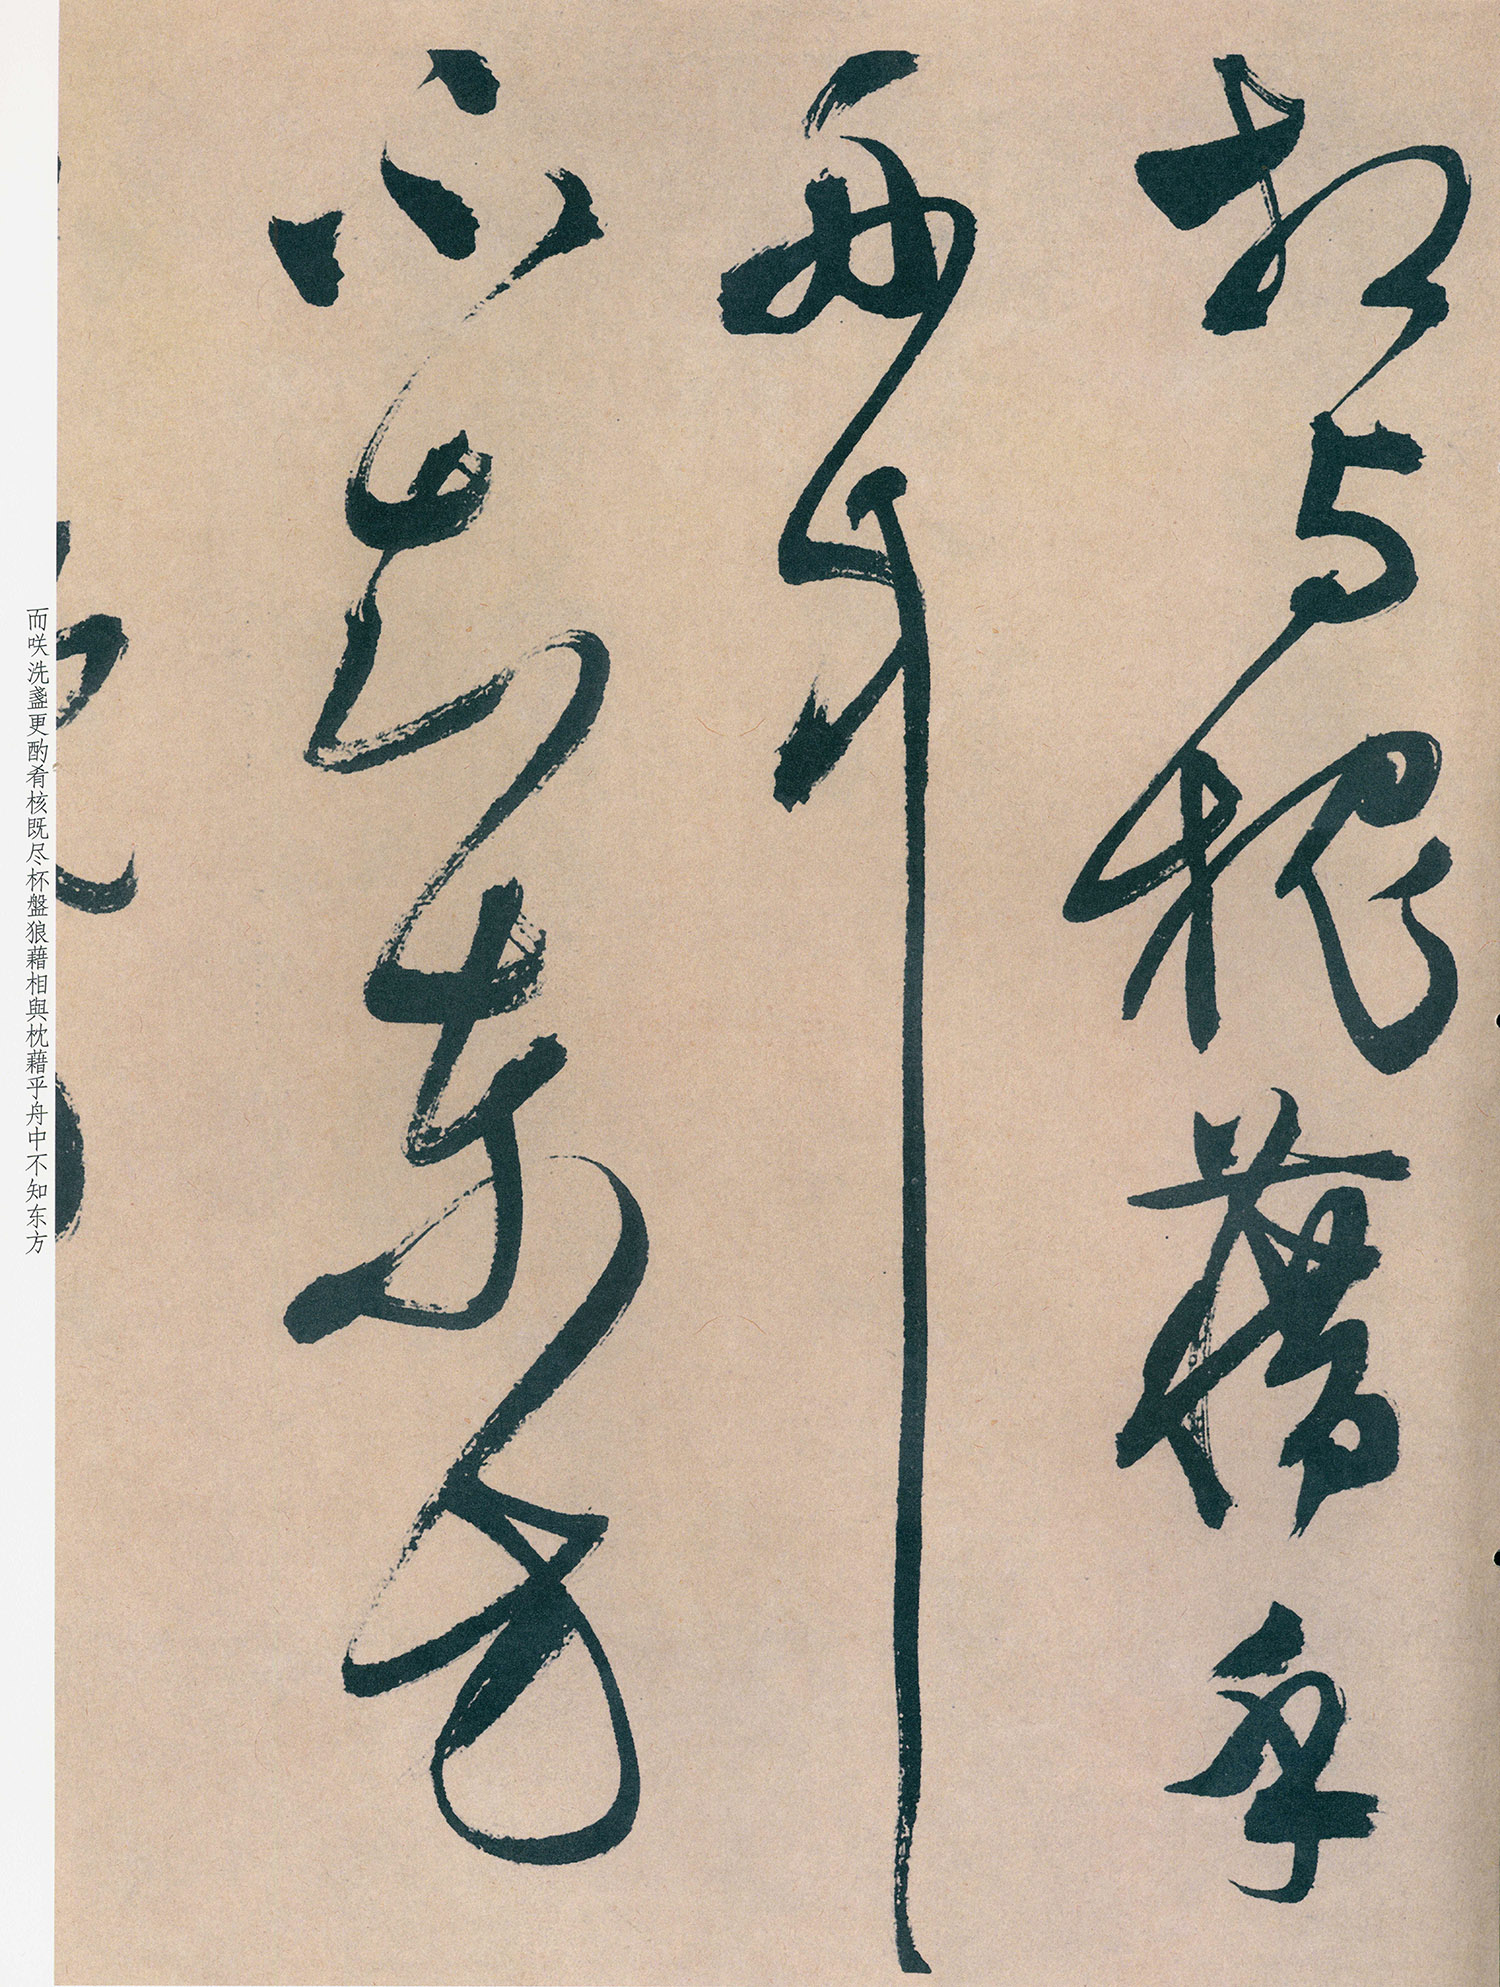 相与枕藉乎
舟中
不知东方
而咲洗盏更酌肴核既尽杯盤狼藉相與枕藉乎舟中不知东方